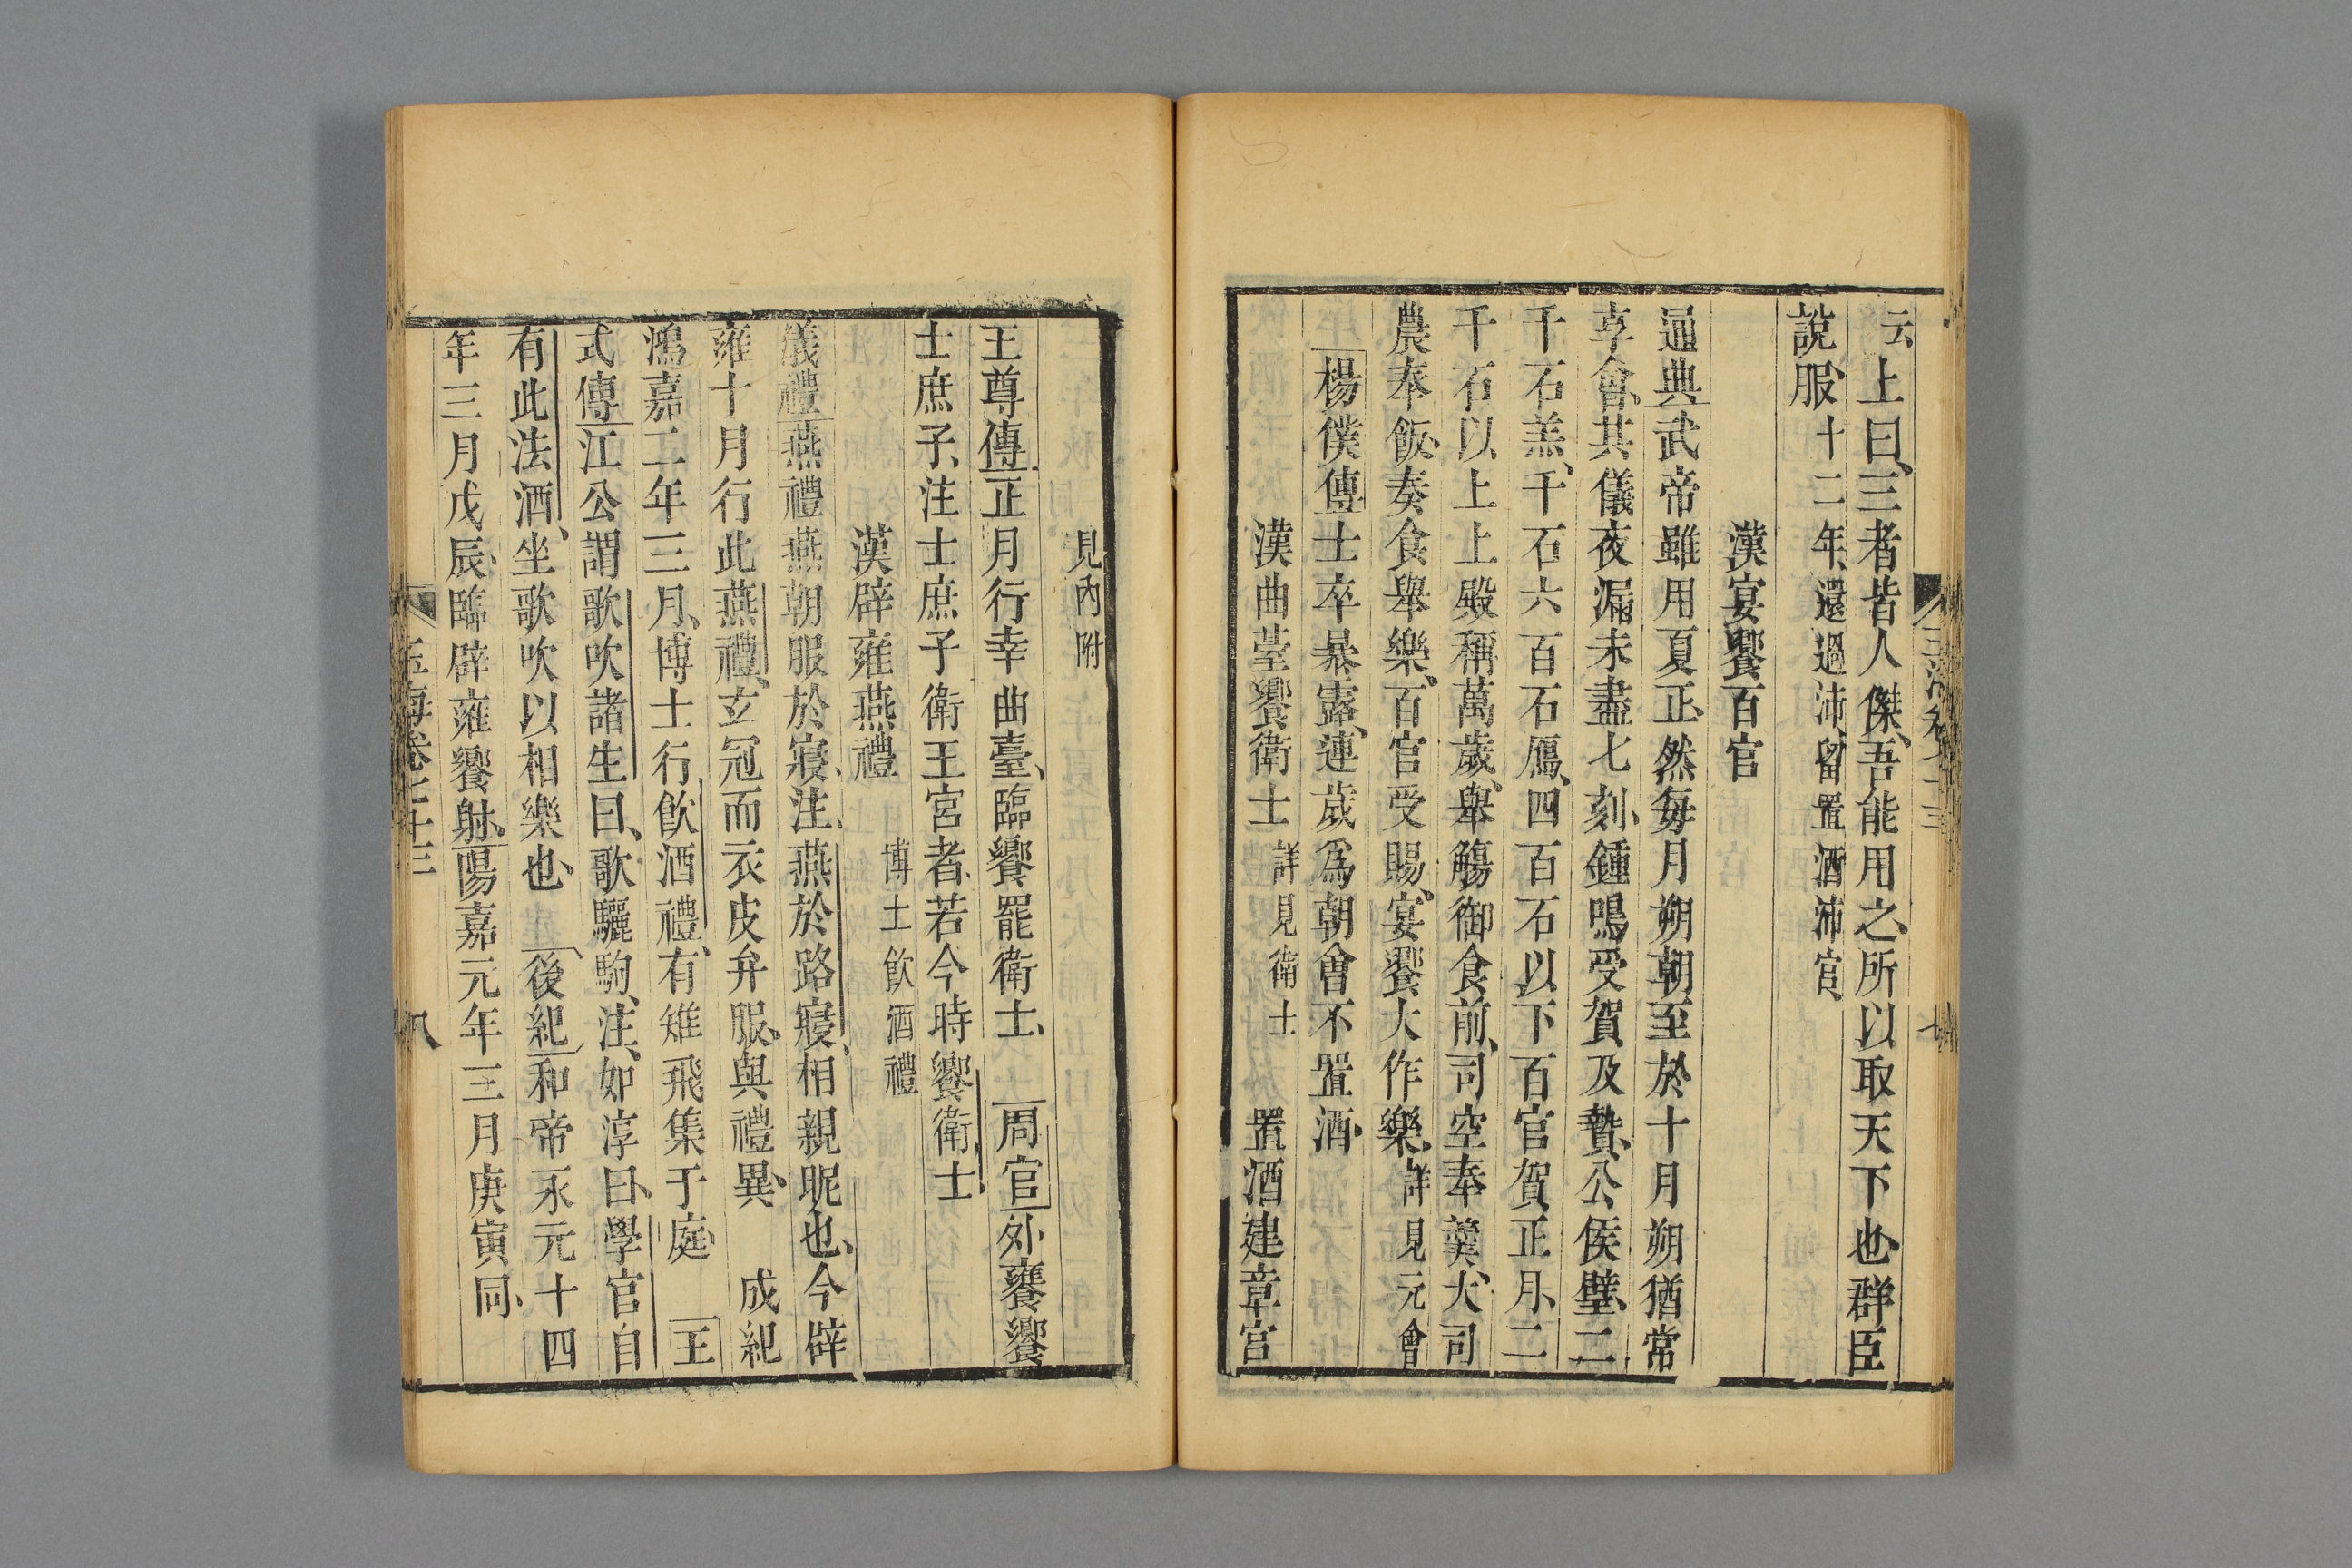 云上曰三者皆人傑吾能用之所以取天下也群臣
說服十二年還過沛留置酒沛宮
漢宴饗百官
通典武帝雖用夏正然每月朔朝至於十月朔猶常
享會其儀夜漏未盡七刻鍾鳴受賀及贄公侯璧二
千石羔千石六百石鴈四百石以下百官賀正月二
千石以上上殿稱萬歲舉觴御食前司空奉羹大司
農奉飯奏食舉樂百官受賜宴饗大作樂詳見元會
楊僕傳士卒暴露連歲爲朝會不置酒
漢曲臺饗衛士詳見衛士 置酒建章宮
見內附
王尊傳正月行幸曲臺臨饗罷衛士 周官外饔饗
士庶子注士庶子衛王宮者若今時饗衛士
漢辟雍燕禮 博士飲酒禮
儀禮燕禮燕朝服於寢注燕於路寢相親昵也今辟
雍十月行此燕禮玄冠而衣皮弁服與禮異 成紀
鴻嘉二年三月博士行飲酒禮有雉飛集于庭 王
式傳江公謂歌吹諸生曰歌驪駒注如淳曰學官自
有此法酒坐歌吹以相樂也 後紀和帝永元十四
年三月戊辰臨辟雍饗射陽嘉元年三月庚寅同
玉海卷七十三 八